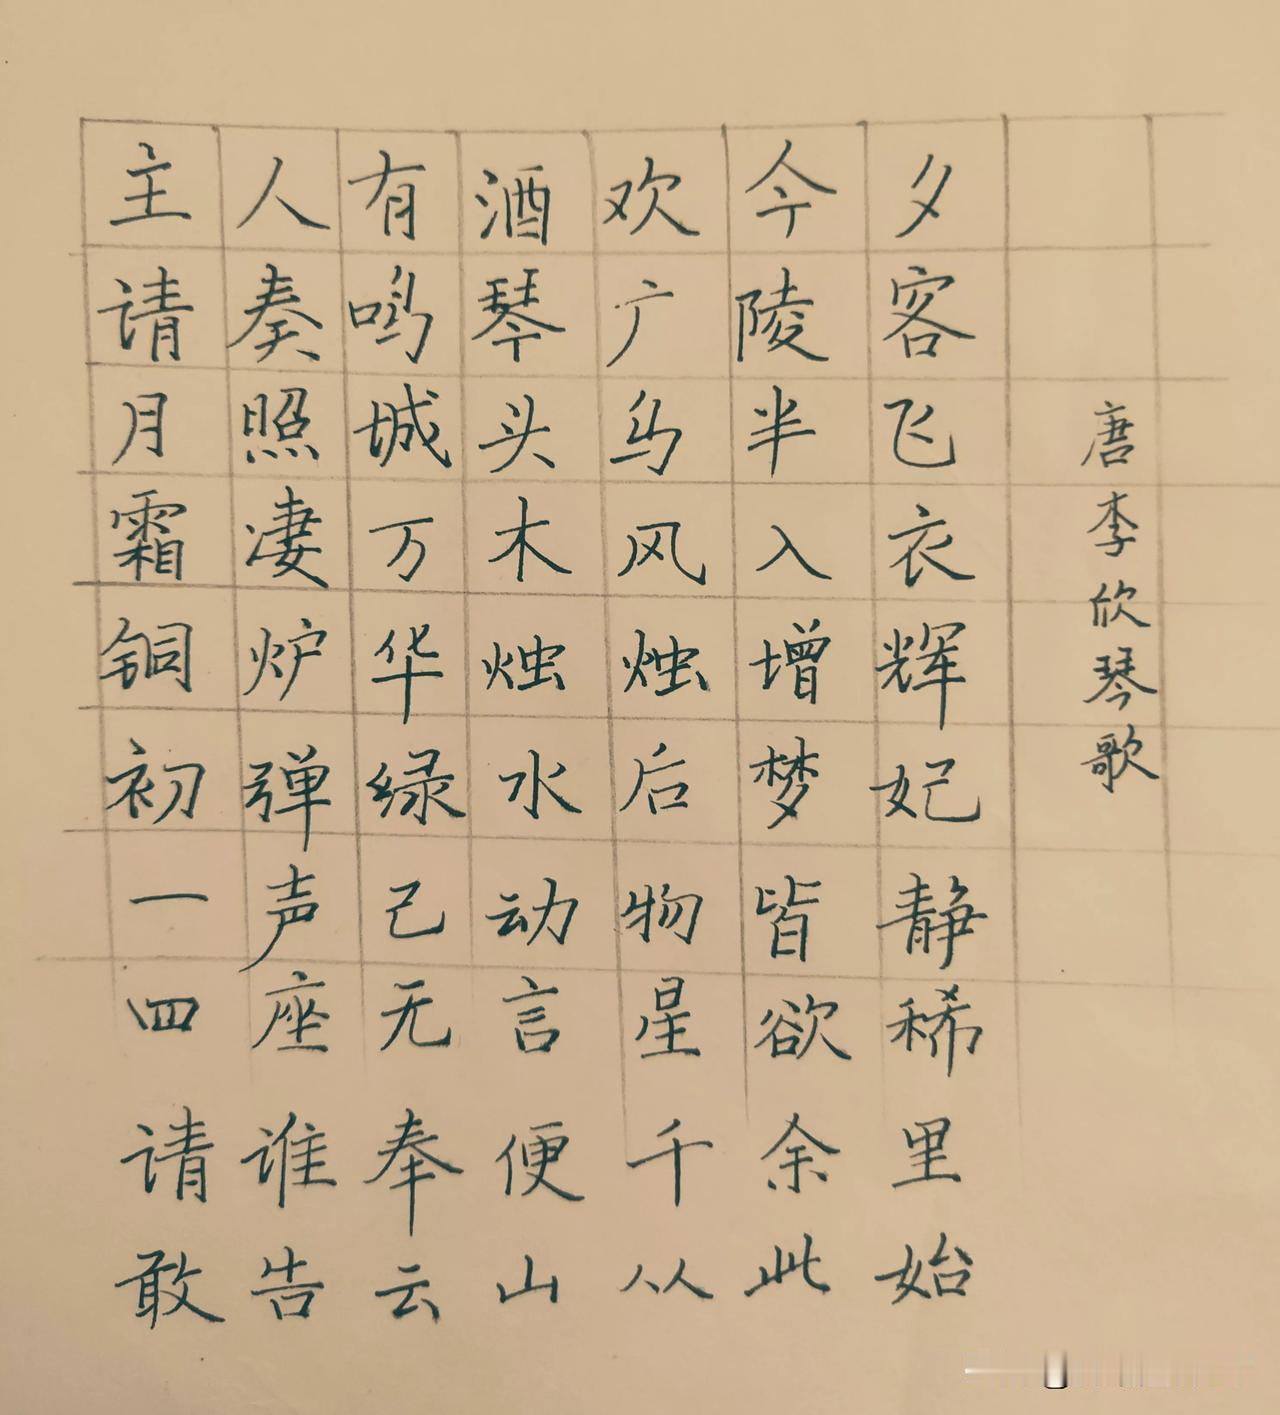 主人有酒欢今夕
请奏鸣琴广陵客
月照城头乌半飞
霜凄万木风入衣
铜炉华烛烛增辉
初弹绿水后梦妃
一声己动物皆静
四座无言星欲稀
请谁奉便千余里
敢告云山从此始
唐李欣琴歌